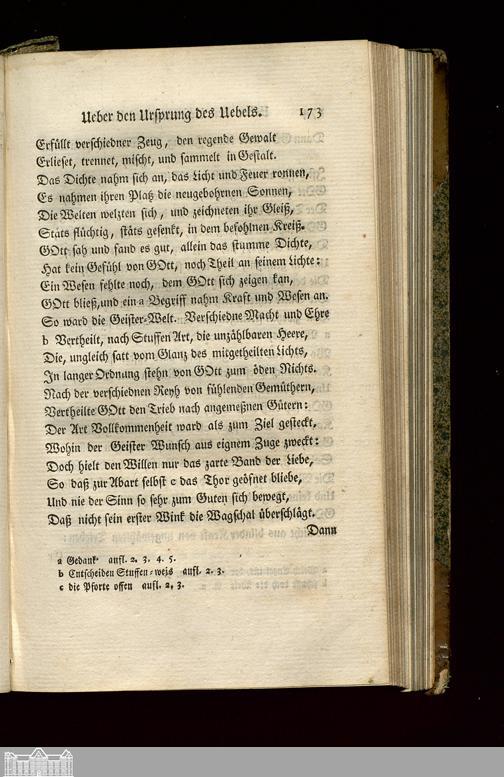 Ueber den Ursprung des Uebels. 173
Erfüllt verschiedner Zeug, den regende Gewalt
Erlieset, trennet, mischt, und sammelt in Gestalt.
Das Dichte nahm sich an, das Licht und Feuer ronnen,
Es nahmen ihren Platz die neugebohrnen Sonnen,
Die Welten welzten sich, und zeichneten ihr Gleiß,
Stäts flüchtig, stäts gesenkt, in dem befohlnen Kreiß.
GOtt sah und fand es gut, allein das stumme Dichte,
Hat kein Gefühl von GOtt, noch Theil an seinem Lichte:
Ein Wesen fehlte noch, dem GOtt sich zeigen kan,
GOtt bließ, und ein a Begriff nahm Kraft und Wesen an.
So ward die Geister-Welt. Verschiedne Macht und Ehre
b Vertheilt, nach Stuffen Art, die unzählbaren Heere,
Die, ungleich satt vom Glanz des mitgetheilten Lichts,
In langer Ordnung stehn von GOtt zum öden Nichts.
Nach der verschiednen Reyh von fühlenden Gemüthern,
Vertheilte GOtt den Trieb nach angemeßnen Gütern:
Der Art Vollkommenheit ward als zum Ziel gesteckt,
Wohin der Geister Wunsch aus eignem Zuge zweckt:
Doch hielt den Willen nur das zarte Band der Liebe,
So daß zur Abart selbst c das Thor geöfnet bliebe,
Und nie der Sinn so sehr zum Guten sich bewegt,
Daß nicht sein erster Wink die Wagschal überschlägt.
Dann
a Gedank aufl. 2. 3. 4. 5.
b Entscheiden Stuffen-weis aufl. 2. 3.
c die Pforte offen aufl. 2. 3.